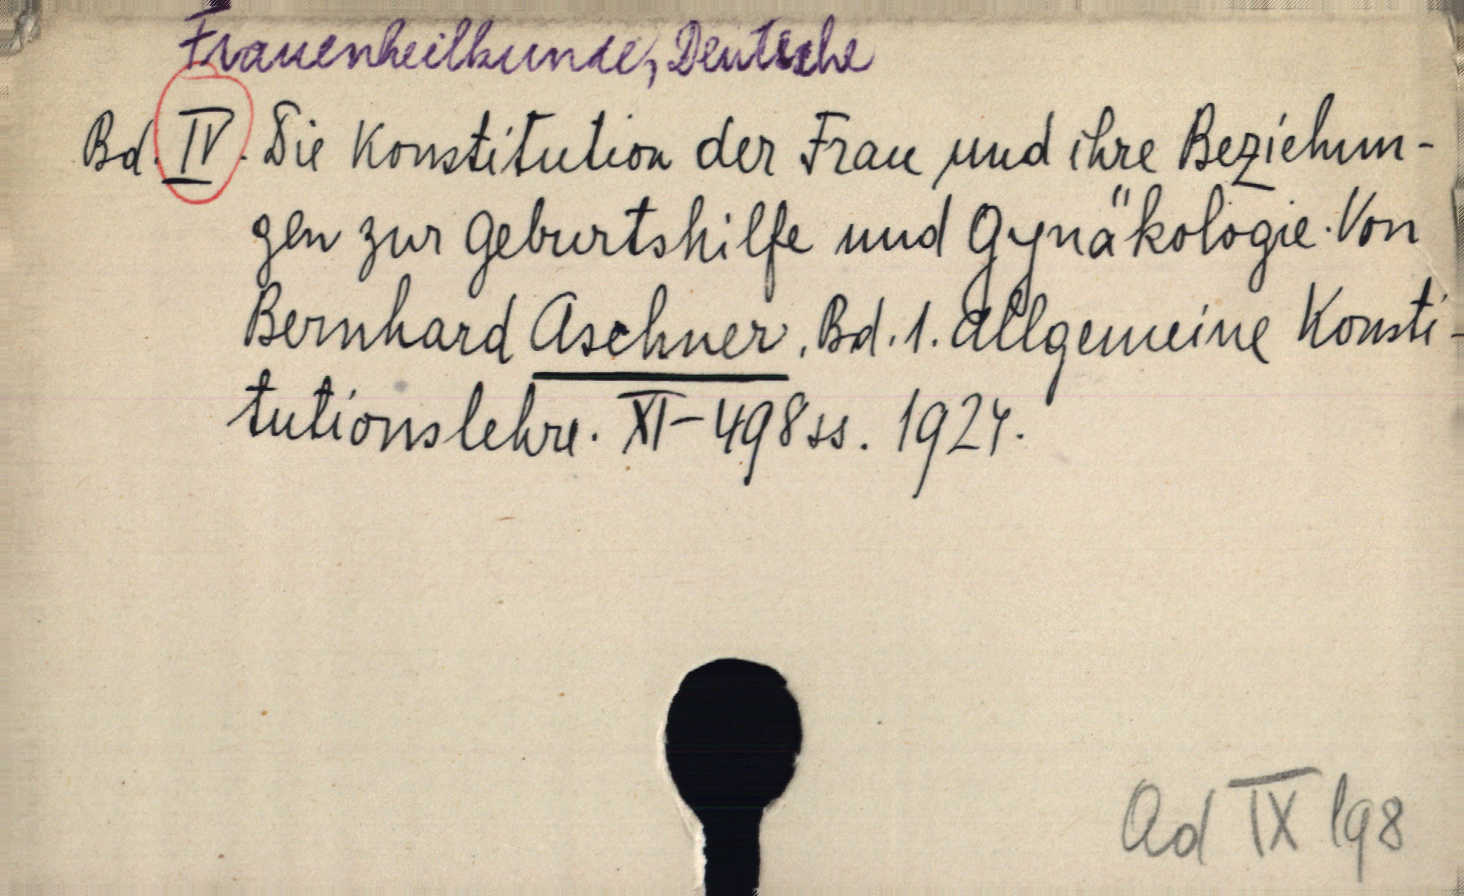 Frauenheilkunde, Deutsche
Bd. IV. Die Konstitution der Frau und ihre Beziehun-
gen zur Geburtshilfe und Gynäkologie. Von
Bernhard Aschner. Bd. 1. Allgemeine Konsti-
tutionslehre. XI-498 ss. 1924.
Ad IX 198